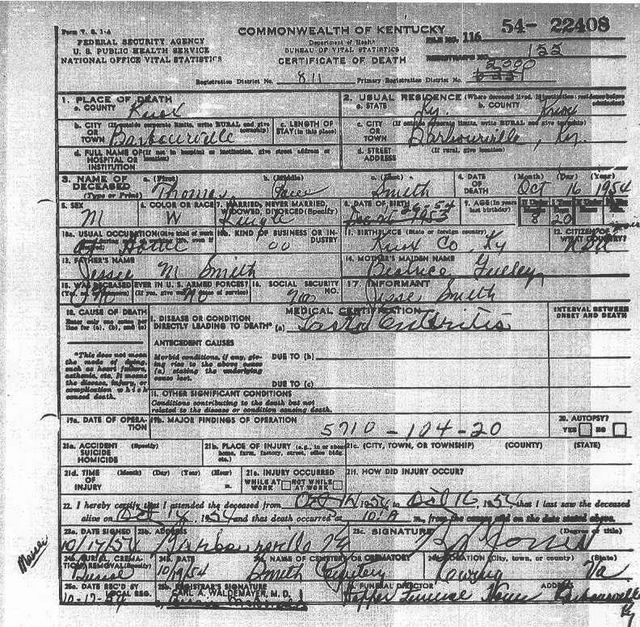 Form V. S. 1-A
COMMONWEALTH OF KENTUCKY
54- 22408
FEDERAL SECURITY AGENCY
U. S. PUBLIC HEALTH SERVICE
NATIONAL OFFICE VITAL STATISTICS
Department of Health
BUREAU OF VITAL STATISTICS
CERTIFICATE OF DEATH
FILE NO. 116
155
2000
Registration District No. 811 Primary Registration District No.
1. PLACE OF DEATH
a. COUNTY Knox
2. USUAL RESIDENCE (Where deceased lived. If institution: residence before admission)
a. STATE Ky. b. COUNTY Knox
b. CITY OR TOWN (If outside corporate limits, write RURAL and give township) Barbourville
c. LENGTH OF STAY (in this place)
c. CITY OR TOWN (If outside corporate limits, write RURAL and give township) Barbourville, Ky.
d. FULL NAME OF HOSPITAL OR INSTITUTION (If not in hospital or institution, give street address or
d. STREET ADDRESS (If rural, give location)
3. NAME OF DECEASED (Type or Print)
a. (First) Thomas b. (Middle) c. (Last) Smith
4. DATE OF DEATH (Month) (Day) (Year) Oct 16 1954
5. SEX M
6. COLOR OR RACE W
7. MARRIED, NEVER MARRIED, WIDOWED, DIVORCED (Specify) Single
8. DATE OF BIRTH
9. AGE (In years last birthday) 8 20
10a. USUAL OCCUPATION At Home
10b. KIND OF BUSINESS OR INDUSTRY
11. BIRTHPLACE (State or foreign country) Knox Co, Ky
12. CITIZEN OF WHAT COUNTRY?
13. FATHER'S NAME Jesse M Smith
14. MOTHER'S MAIDEN NAME Beatrice
15. WAS DECEASED EVER IN U. S. ARMED FORCES? no
16. SOCIAL SECURITY NO. no
17. INFORMANT Jesse Smith
18. CAUSE OF DEATH
MEDICAL CERTIFICATION
INTERVAL BETWEEN ONSET AND DEATH
I. DISEASE OR CONDITION DIRECTLY LEADING TO DEATH* (a) Gastro Enteritis
*This does not mean the mode of dying, such as heart failure, asthenia, etc. It means the disease, injury, or complication which caused death.
ANTECEDENT CAUSES
Morbid conditions, if any, giving rise to the above cause (a) stating the underlying cause last.
DUE TO (b)
DUE TO (c)
II. OTHER SIGNIFICANT CONDITIONS
Conditions contributing to the death but not related to the disease or condition causing death.
19a. DATE OF OPERATION
19b. MAJOR FINDINGS OF OPERATION
5710-104-20
20. AUTOPSY? YES NO
21a. ACCIDENT SUICIDE HOMICIDE (Specify)
21b. PLACE OF INJURY (e.g., in or about home, farm, factory, street, office bldg. etc.)
21c. (CITY, TOWN, OR TOWNSHIP) (COUNTY) (STATE)
21d. TIME OF INJURY (Month) (Day) (Year) (Hour)
21e. INJURY OCCURRED WHILE AT WORK NOT WHILE AT WORK
21f. HOW DID INJURY OCCUR?
22. I hereby certify that I attended the deceased from Oct 1954 to Oct 16 1954 that I last saw the deceased
alive on Oct 1954 and that death occurred at m., from the causes and on the date stated above.
23a. DATE SIGNED
23b. ADDRESS Barbourville Ky
23c. SIGNATURE
24a. BURIAL, CREMATION, REMOVAL (Specify) Burial
24b. DATE
24c. NAME OF CEMETERY OR CREMATORY Smith Cemetery
24d. LOCATION (City, town, or county) (State) Va
25a. DATE REC'D BY LOCAL REG. 10-17-54
25b. REGISTRAR'S SIGNATURE
CARL A. WALDEMAYER, M. D.
26. FUNERAL DIRECTOR ADDRESS
Hopper Funeral Home Barbourville Ky